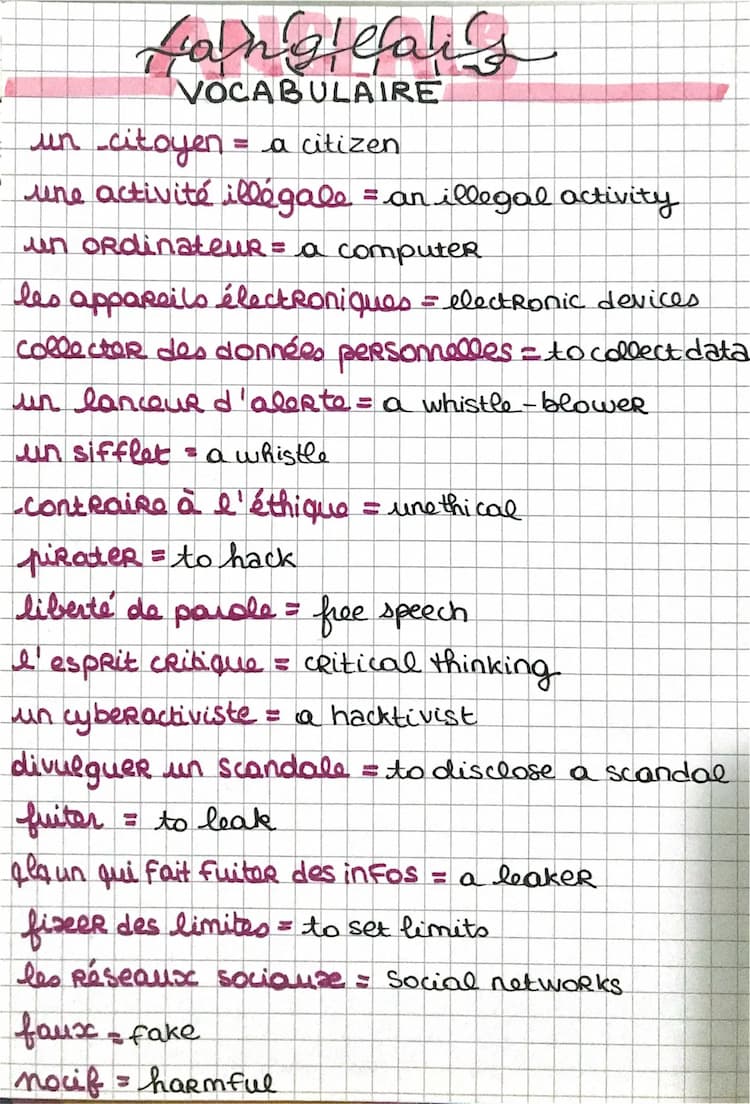 anglais
VOCABULAIRE
un citoyen = a citizen
une activité illégale = an illegal activity
un ordinateur = a computer
les appareils électroniques = electronic devices
collecter des données personnelles = to collect data
un lanceur d'alerte = a whistle-blower
un sifflet = a whistle
contraire à l'éthique = unethical
pirater = to hack
liberté de parole = free speech
l'esprit critique = critical thinking
un cyberactiviste = a hacktivist
divulguer un scandale = to disclose a scandal
fuiter = to leak
qlqun qui fait fuiter des infos = a leaker
fixer des limites = to set limits
les réseaux sociaux = social networks
faux = fake
nocif = harmful